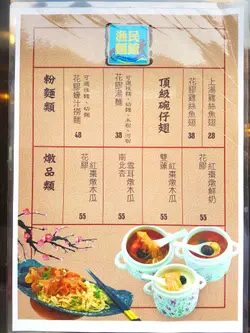 漁民
麵館
頂級碗仔翅
上湯雞絲魚翅
38
花膠雞絲魚翅
28
粉麵類
花膠湯麵
38
花膠蠔汁撈麵
48
燉品類
花膠紅棗燉鮮奶
55
雙蓮紅棗燉木瓜
55
南北杏雪耳燉木瓜
55
花膠紅棗燉木瓜
55